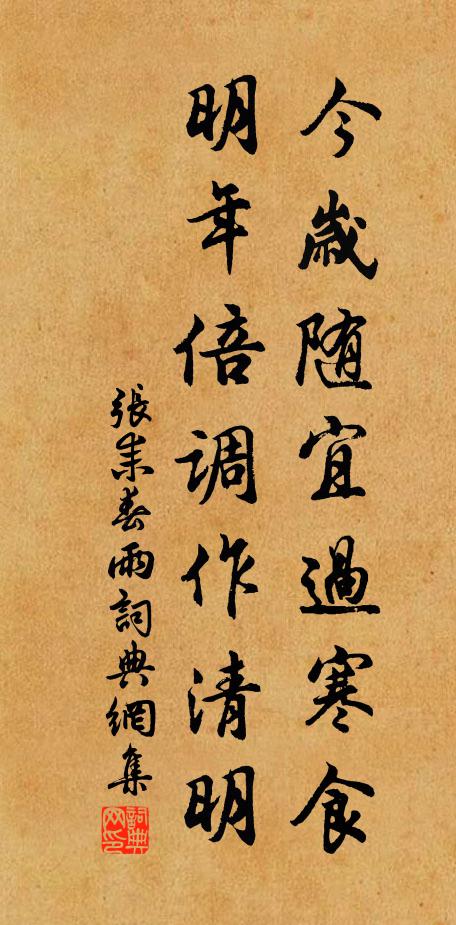 今歲随宜過寒食
明年倍调作清明
張耒春雨詞典網集
詞典网印